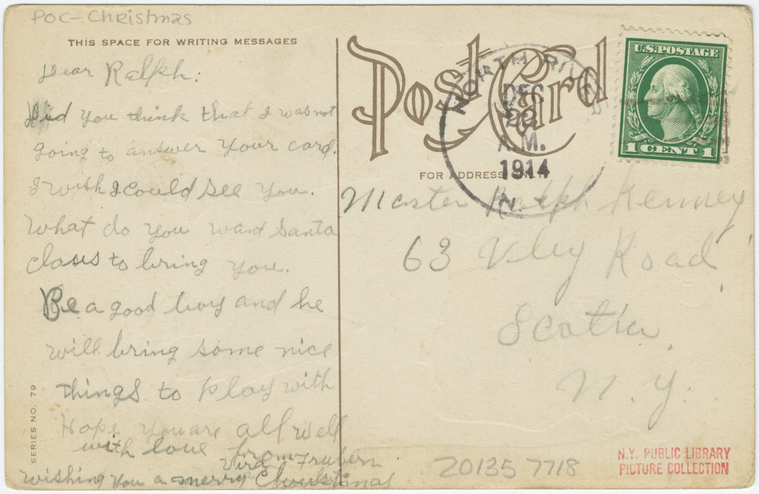 POC-Christmas
THIS SPACE FOR WRITING MESSAGES
Dear Ralph:
Did you think that I was not
going to answer your card.
I wish I could see you.
What do you want Santa
claus to bring you.
Be a good boy and he
will bring some nice
things to play with
Hope you are all well
with love from
wishing you a merry Christmas
SERIES NO. 79
Post Card
FOR ADDRESS
NORTH
DEC
22
A.M.
1914
N.
U.S. POSTAGE
1 CENT 1
Master Ralph Kenney
63 Vley Road
Scotia
N.Y.
20135 7718
N.Y. PUBLIC LIBRARY
PICTURE COLLECTION